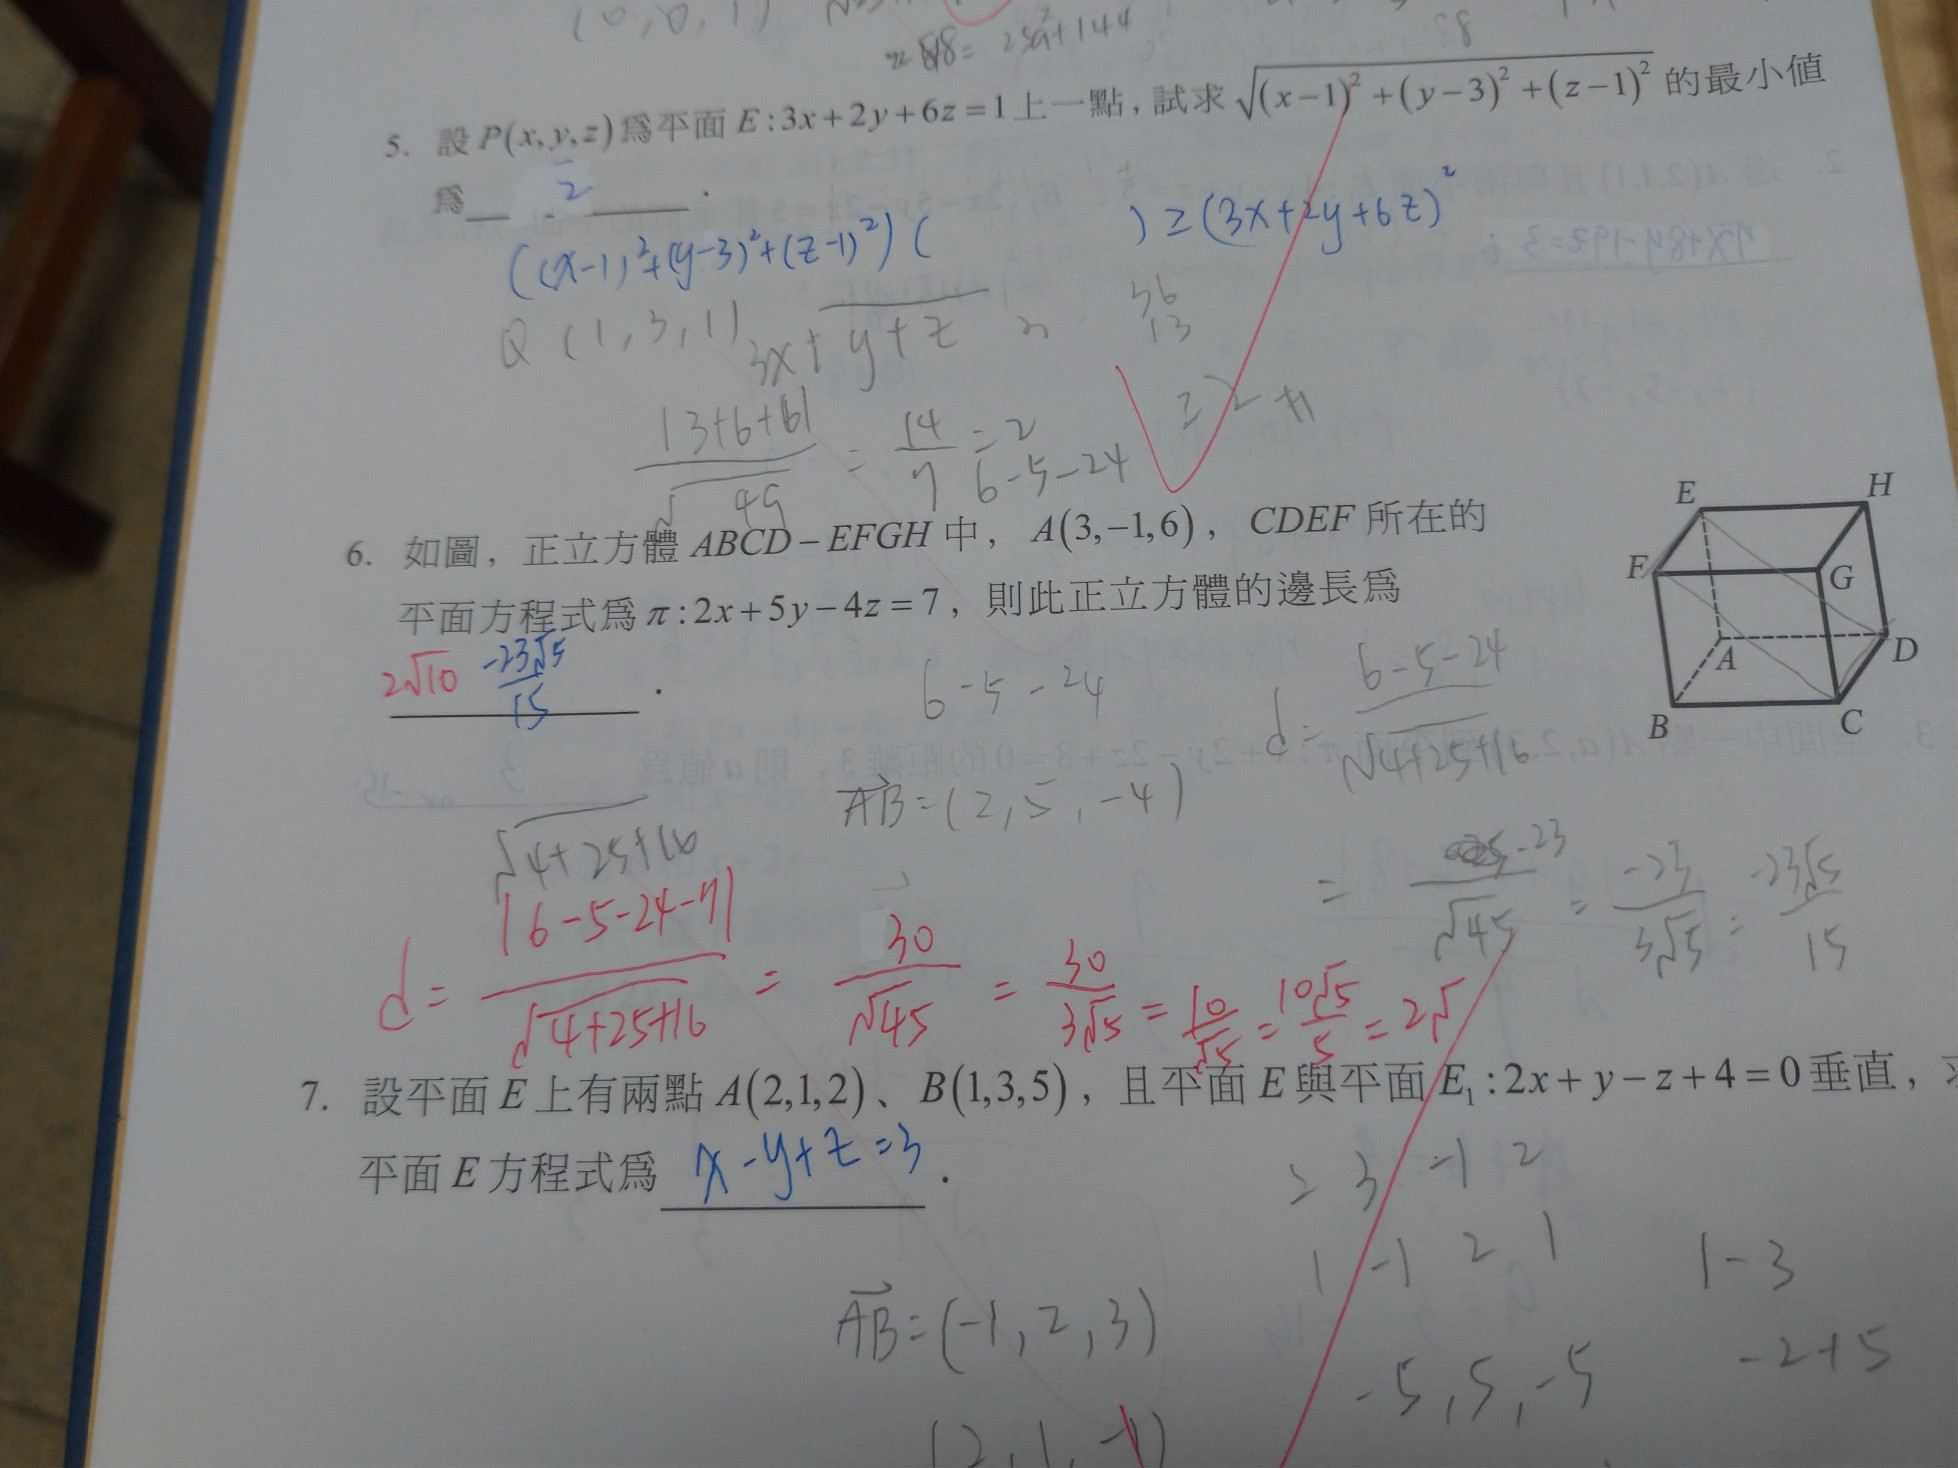 (0,0,1)
= 25a²+144
5. 設P(x,y,z)爲平面E:3x+2y+6z=1上一點,試求√((x-1)²+(y-3)²+(z-1)²)的最小値
爲 2 .
((x-1)²+(y-3)²+(z-1)²)( )≥(3x+2y+6z)²
Q(1,3,1)
3x+y+z
36
13
|3+6+6|/√49 = 14/7 = 2
6-5-24
6. 如圖,正立方體ABCD-EFGH中,A(3,-1,6),CDEF所在的
平面方程式爲π:2x+5y-4z=7,則此正立方體的邊長爲
2√10 -23√5/15 .
E H F G A D B C
6-5-24
d=(6-5-24)/√(4+25+16)
AB=(2,5,-4)
√(4+25+16)
= -23/√45 = -23/3√5 = -23√5/15
d=|6-5-24-7|/√(4+25+16) = 30/√45 = 30/3√5 = 10/√5 = 10√5/5 = 2√
7. 設平面E上有兩點A(2,1,2)、B(1,3,5),且平面E與平面E₁:2x+y-z+4=0垂直,
平面E方程式爲 x-y+z=3 .
2 3 -1 2
1 -1 2 1
1-3
AB=(-1,2,3)
-2+5
-5,5,-5
(2,1,-1)